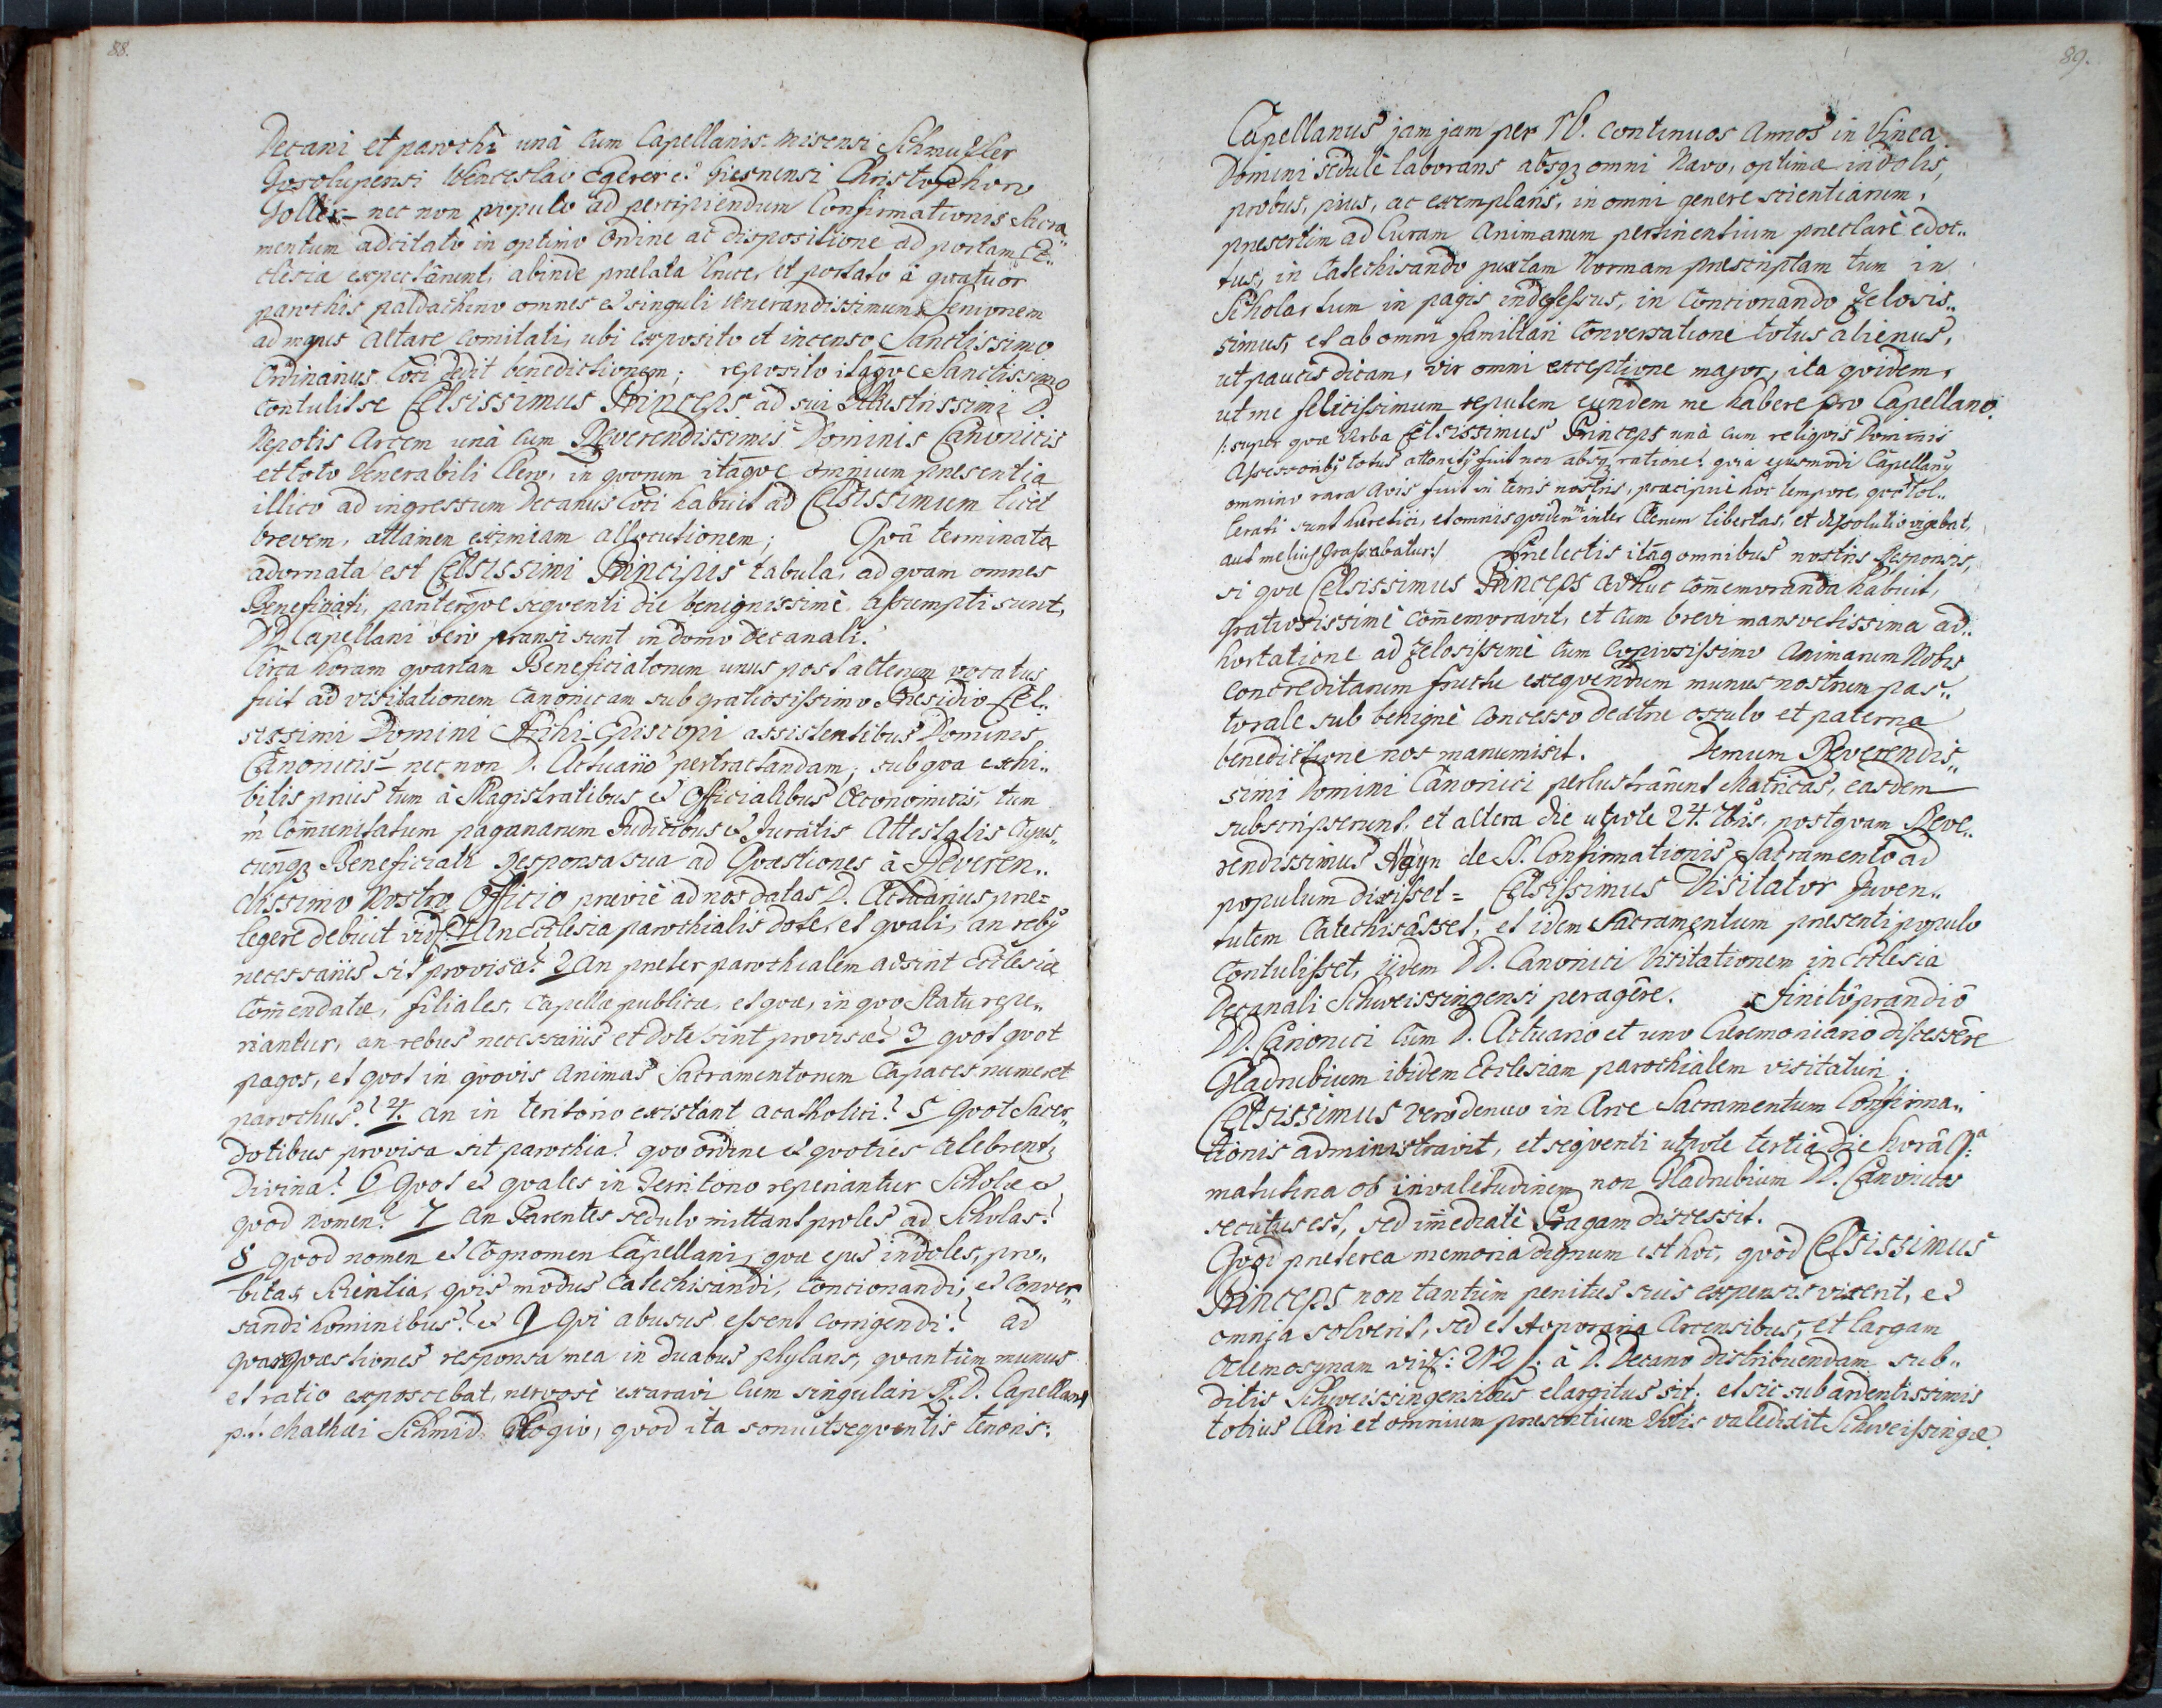 88.
Decani et parochi unà cum Capellanis: Misensi Schmutzler
Gosolupensi Wenceslao Egerer et Kiesnensi Christophoro
Goller – nec non populo ad percipiendum Confirmationis Sacra„
mentum adcitato in optimo Ordine ac dispositione ad portam Ec„
clesiæ expectârunt, abinde prælata Cruce, et portato à qvatuor
parochis paldachino omnes et singuli Venerandissimum Seniorem
ad majus altare comitati, ubi exposito et incenso Sanctissimo
Ordinarius Loci dedit benedictionem; reposito itaqve Sanctissimo
contulit se Celsissimus Princeps ad sui Illustrissimi D.
Nepotis Arcem unà cum Reverendissimis Dominis Canonicis
et toto Venerabili Clero, in qvorum itaqve omnium præsentia
illico ad ingressum Decanus Loci habuit ad Celsissimum licet
brevem, attamen eximiam allocutionem; Qvâ terminata
adornata est Celsissimi Principis tabula, ad qvam omnes
Beneficiati, pariterqve seqventi die benignissimè assumpti sunt,
DD. Capellani verò pransi sunt in domo decanali.
Circa horam qvartam Beneficiatorum unus post alterum vocatus
fuit ad visitationem canonicam sub gratiosissimo Præsidio Cel„
sissimi Domini Archi-Episcopi assistentibus Dominis
Canonicis – nec non D. Actuario pertractandam; sub qva exhi„
bitis prius tum à Magistratibus et Officialibus Œconomicis, tum
Communitatum paganarum Judicibus et Juratis Attestatis cujus„
cunqz Beneficiati Responsa sua ad Qvæstiones à Reveren„
dissimo Nostro Officio previè ad nos datas D. Actuarius præ=
legere debuit vidlt: 1 An Ecclesia parochialis dote, et qvali, an reby
necessariis sit provisa? 2 An præter parochialem adsint Ecclesiæ
Commendatæ, filiales, capellæ publicæ, et qvæ, in qvo Statu repe„
riantur, an rebus necessariis et dote sint provisæ? 3 qvot qvot
pagos, et qvot in qvovis animas Sacramentorum capaces numeret
parochus? 4. an in territorio existant acatholici? 5 Qvot Sacer„
dotibus provisa sit parochia? qvo ordine et qvoties celebrent
Divina? 6 Qvot et qvales in Territorio reperiantur Scholæ et
qvod nomen? 7 An Parentes sedulo mittant proles ad Scholas?
8 qvod nomen et Cognomen Capellani, qvæ ejus indoles, pro„
bitas, Scientia, qvis modus Catechisandi, Concionandi, et Conver„
sandi hominibus? et 9 Qvi abusus essent corrigendi? ad
qvas qvæstiones responsa mea in duabus phyluris, qvantùm munus
et ratio exposcebat, nervosè exaravi cum singulari R. D. Capellani
p.t. Mathæi Schmid Elogio, qvod ita sonuit seqventis tenoris:
89.
Capellanus jam jam per IV. continuos annos in Vinea
Domini sedulè laborans absqz omni Nævo, optimæ indolis,
probus, pius, ac exemplaris, in omni genere scientiarum,
præsertim ad Curam Animarum pertinentium præclarè edoc„
tus, in Catechisando juxtam Normam præscriptam tum in
Schola, tum in pagis indefessus, in Concionando Zelosis„
simus, et ab omni familiari Conversatione totus alienus,
ut paucis dicam, vir omni exceptione major, ita qvidem,
ut me felicissimum reputem eundem me habere pro Capellano.
/: super qvæ Verba Celsissimus Princeps unà cum reliqvis Dominis
Assessoriby totus attonity fuit non absqz ratione: qvia ejusmodi Capellany
omnino rara avis fuit in terris nostris, præcipuè hoc tempore, qvo tol„
lerati sunt hæretici, et omnis qvidem inter Clerum libertas, et dissolutio vigebat,
aut melius grassabatur:/ Prælectis itaq omnibus nostris Responsis,
si qvæ Celsissimus Princeps adhuc Commemoranda habuit,
gratiosissimè commemoravit, et cum brevi mansvetissima ad„
hortatione ad zelosissimè cum copiosissimo animarum Nobis
concreditarum fructu exeqvendum munus nostrum pas„
torale sub benignè concesso dextræ osculo et paterna
benedictione nos manumisit. Demum Reverendis„
simi Domini Canonici perlustrârunt Matricas, easdem
subscripserunt, et altera die utpote 24. 7bris, postqvam Reve„
rendissimus Hayn de SS. Confirmationis Sacramento ad
populum dixisset = Celsissimus Visitator Juven„
tutem Catechisâsset, et idem Sacramentum præsenti populo
Contulisset, iidem DD. Canonici Visitationem in Ecclesia
Decanali Schweissingensi peragêre. Finitô prandiô
DD. Canonici cum D. Actuario et uno Cæremoniario discessêre
Cladrubium ibidem Ecclesiam parochialem visitaturi;
Celsissimus verò denuo in Arce Sacramentum Confirma„
tionis administravit, et seqventi utpote tertia die horâ 9.a
matutina ob invaletudinem non Cladrubium DD. Canonicos
secutus est, sed immediatè Pragam discessit.
Qvoqi præterea memoria dignum est hoc, qvòd Celsissimus
Princeps non tantùm penitus suis expensis vixerit, et
omnia solverit, sed et Honoraria Arcensibus, et largam
elemosynam viz: 212 f. à D. Decano distribuendam sub„
ditis Schweissingensibus elargitus sit; et sic sub ardentissimis
totius Cleri et omnium præsentium Votis valedixit Schweissingæ.